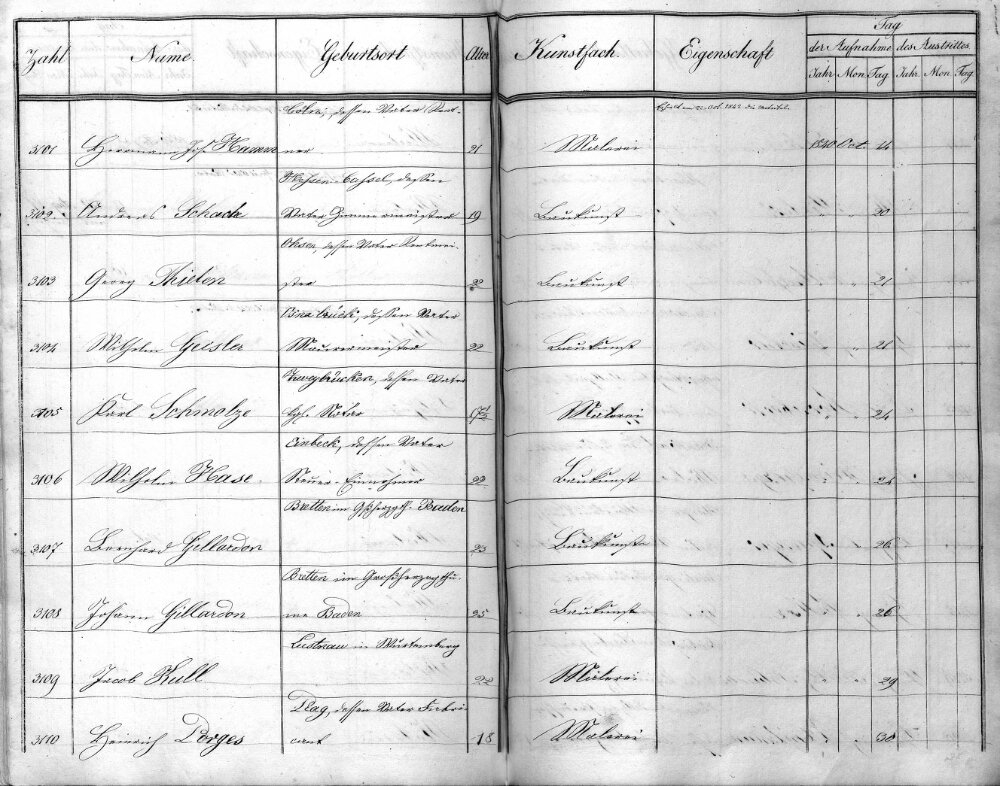 Zahl Name Geburtsort Alter Kunstfach. Eigenschaft Tag
der Aufnahme des Austrittes.
Jahr Mon. Tag Jahr. Mon. Tag
Cöln, dessen Vater Rent-
3101 Hermann Jos. Hamm ner 21 Malerei 1840 Oct. 14
Hessen-Cassel, dessen
3102 Andreas Schade Vater Zimmermeister 19 Baukunst " 20
Ohsen, dessen Vater Rentmei-
3103 Georg Thielen ster 22 Baukunst " " 21
Osnabrück, dessen Vater
3104 Wilhelm Maurermeister 22 Baukunst " " 21
Zweybrücken, dessen Vater
3105 Karl Schmolze kgl. Notar 17½ Malerei " " 24
Einbeck, dessen Vater
3106 Wilhelm Hase. Steuer-Einnehmer 22 Baukunst " " 24
Bretten im Baden
3107 Bernhard Gillardon 23 Baukunst " " 26
Bretten im Großherzogthu-
3108 Johann Gillardon me Baden 25 Baukunst " " 26
Lustnau in Würtemberg
3109 Jacob Kull 22 Malerei " " 29
Prag, dessen Vater Fabri-
3110 Heinrich Porges cant 18 Malerei " " 30